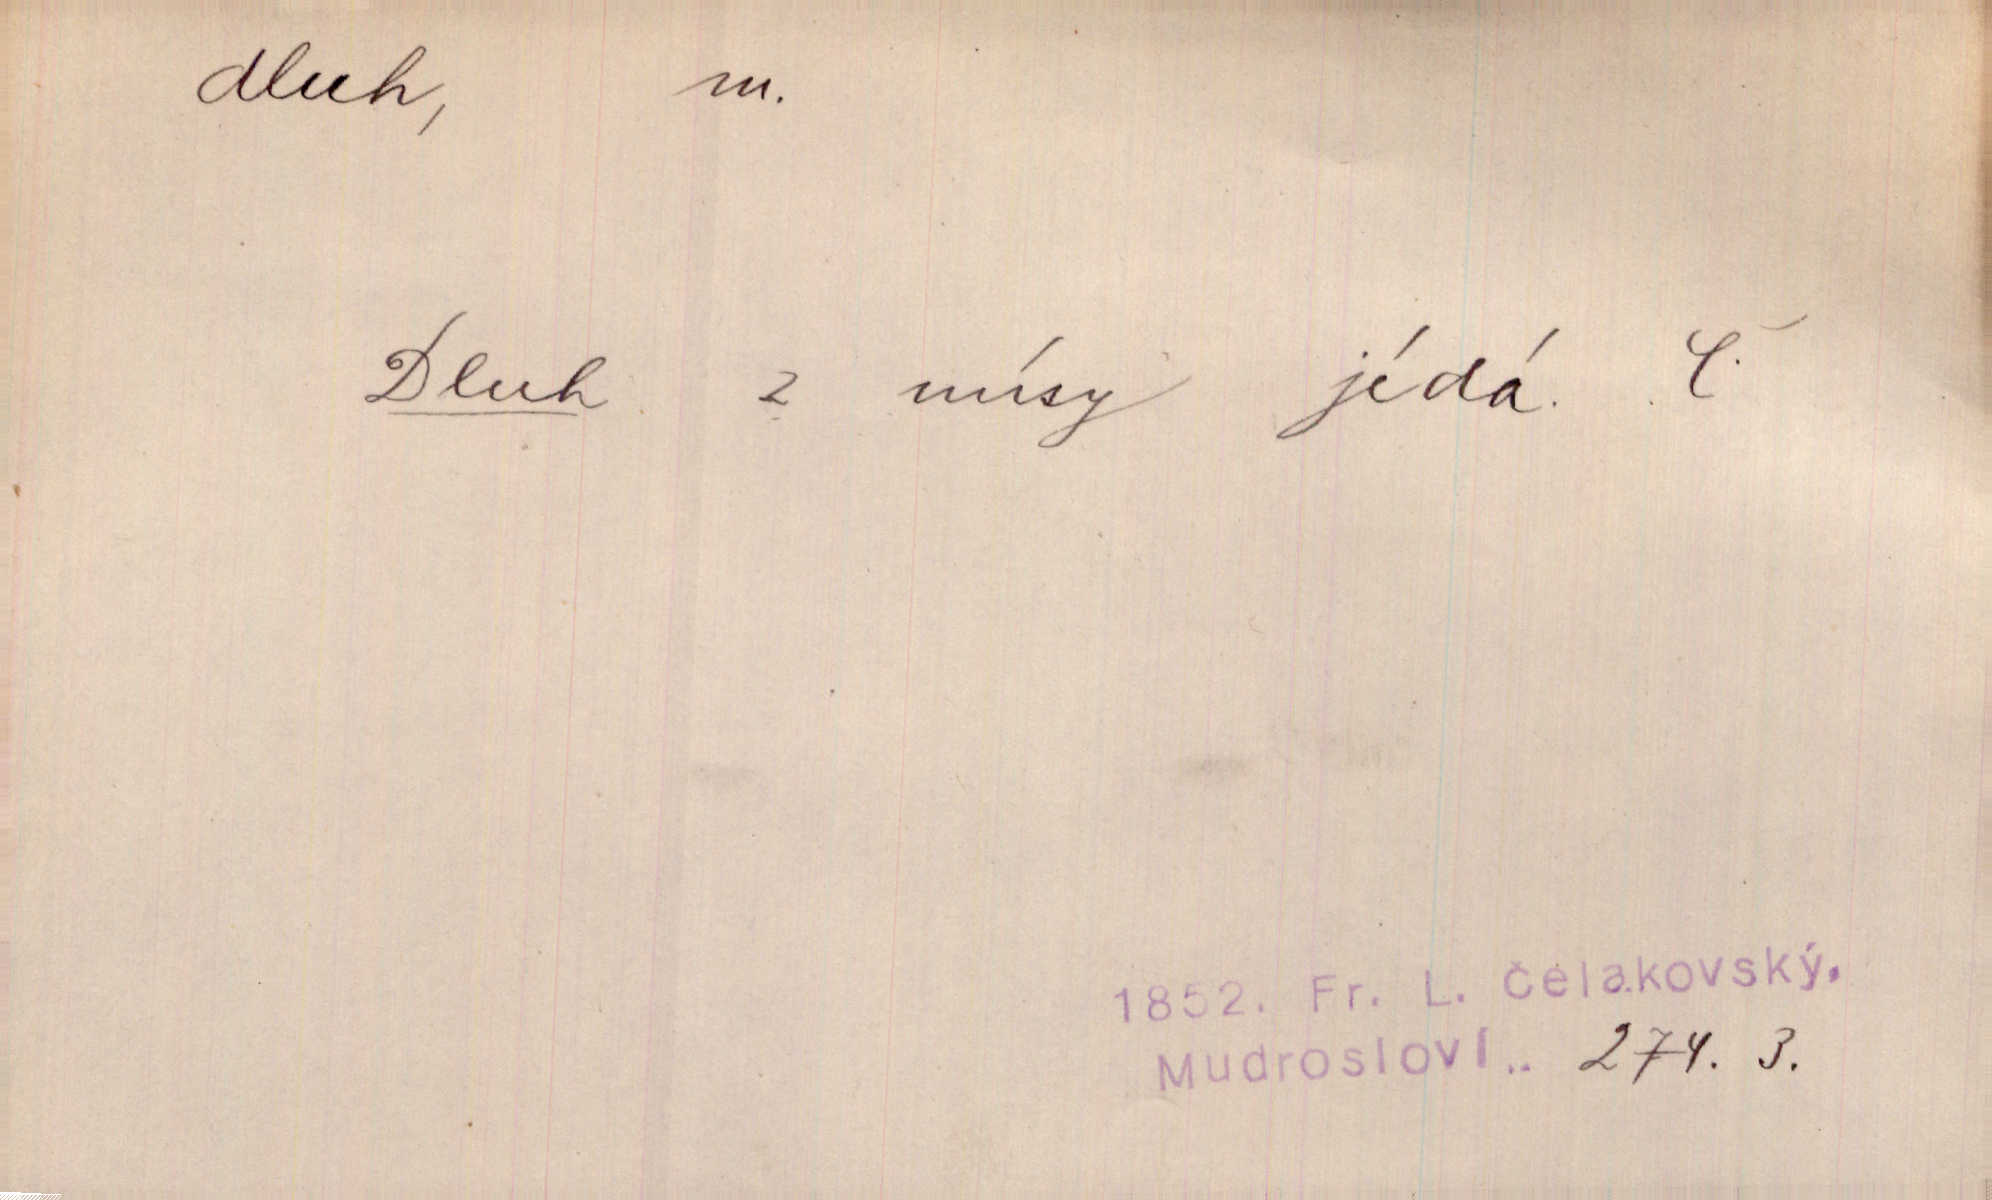 dluh, m.
Dluh z mísy jédá. Č
1852. Fr. L. Čelakovský.
Mudrosloví.. 274. 3.